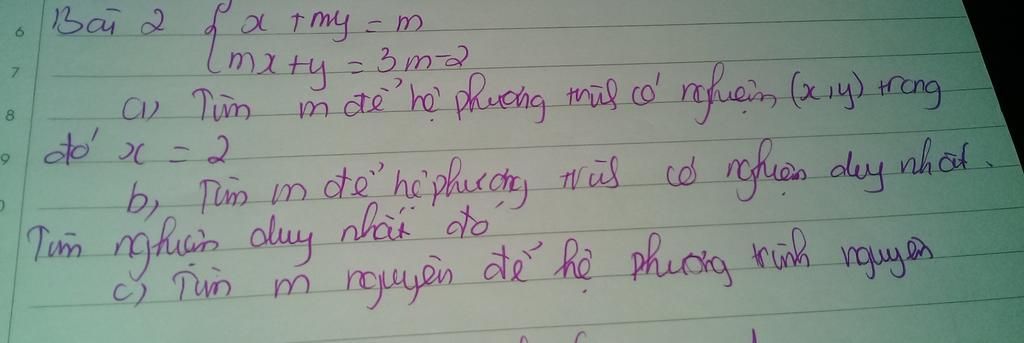 Bài 2 { x + my = m
mx + y = 3m - 2
a) Tìm m để hệ phương trình có nghiệm (x, y) trong
đó x = 2
b, Tìm m để hệ phương trình có nghiệm duy nhất.
Tìm nghiệm duy nhất đó
c) Tìm m nguyên để hệ phương trình nguyên